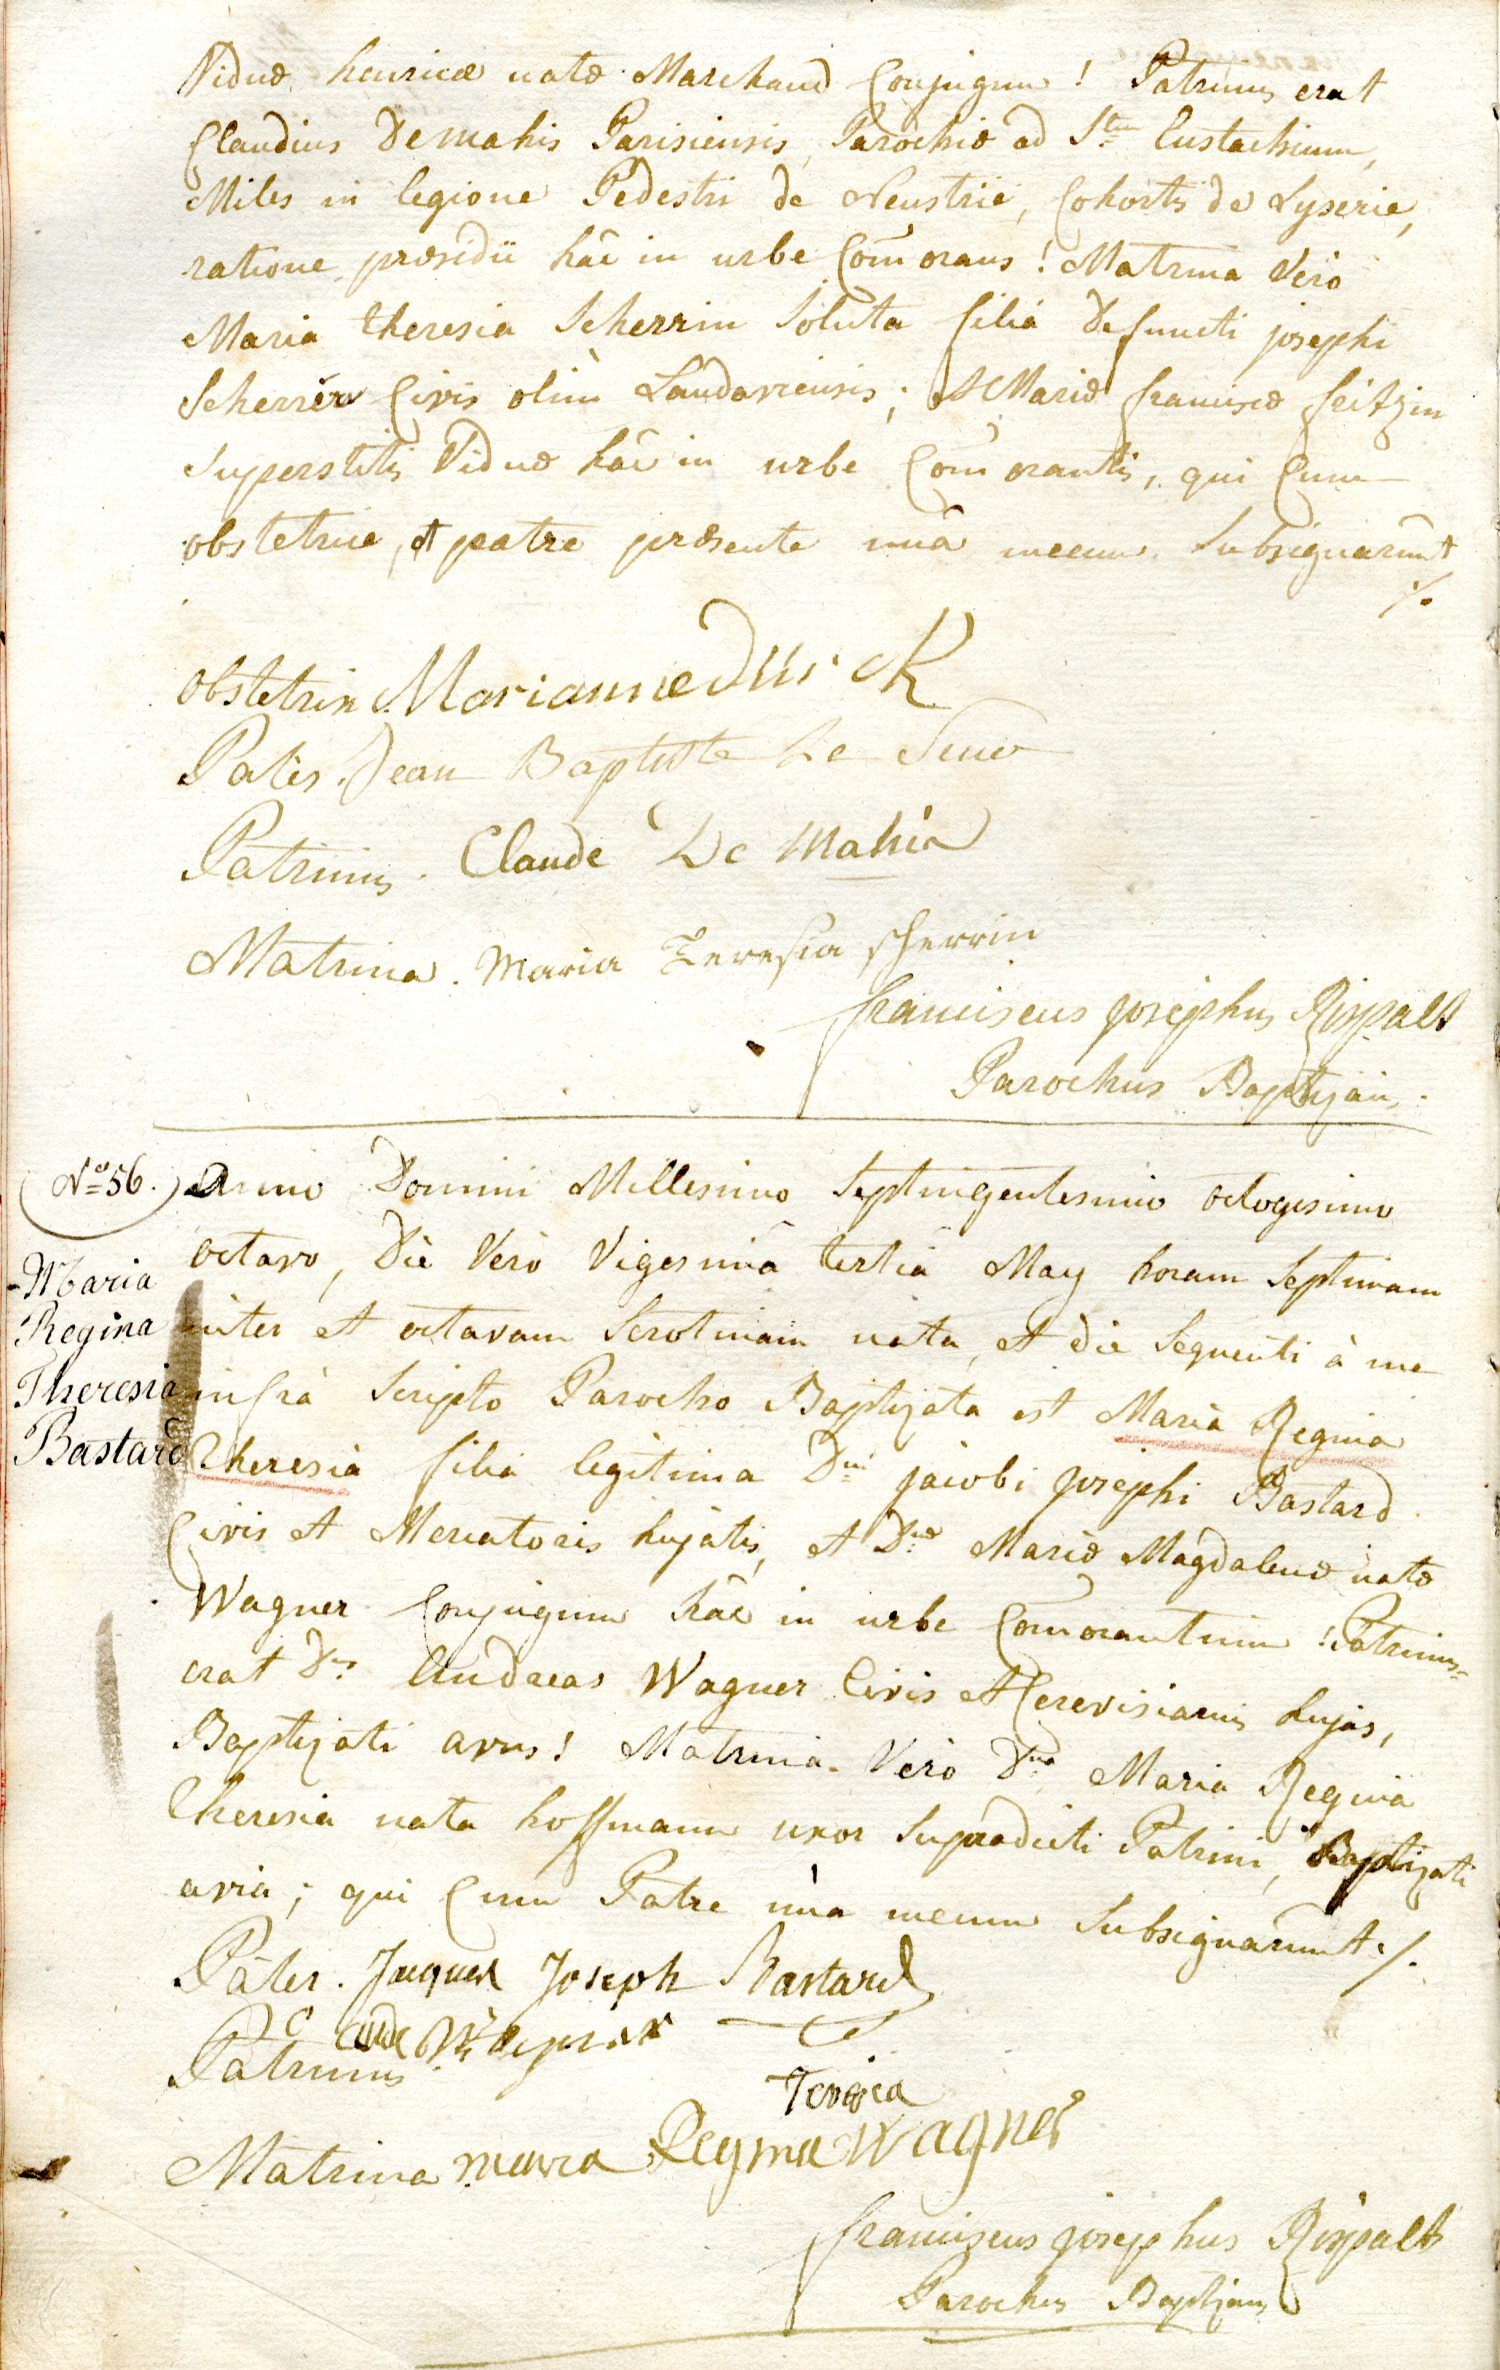 Viduæ henricæ natæ Marchand Conjugum! Patrinus erat
Claudius Demahis Parisiensis, Parochiæ ad Stum Eustachium,
Miles in legione Pedestri de Neustrie, Cohortis de Lyserie,
ratione præsidii hâc in urbe Com̄orans! Matrina Verò
Maria theresia Scherrin Soluta filia Defuncti josephi
Scherrer Civis olim Landaviensis; et Mariæ franciscæ feitzin
Superstitis Viduæ hâc in urbe Com̄orantis, qui Cum
obstetrice, et patre præsente unâ mecum Subsignarunt
./.
Obstetrix Marianne Dürck
Pater. Jean Baptiste Le
Patrinus. Claude De Mahis
Matrina. Maria Teresia scherrin
franciscus josephus Rippalt
Parochus Baptizans.
(No 56.) Anno Domini Millesimo Septingentesimo octogesimo
octavo, Die Verò Vigesimâ tertiâ May horam Septimam
inter et octavam Serotinam nata, et die Sequenti à me
infrà Scripto Parocho Baptizata est Maria Regina
Theresia filia legitima Dni jacobi josephi Bastard
Maria
Regina
Theresia
Bastard
Civis et Mercatoris hujatis, et Dnæ Mariæ Magdalenæ natæ
Wagner Conjugum hâc in urbe Com̄orantium! Patrinus
erat Dns Andreas Wagner Civis et Cerevisiarius hujas,
Baptizati avus! Matrina Verò Dna Maria Regina
Theresia nata hoffmann uxor Supradicti Patrini, Baptizati
avia; qui Cum Patre unà mecum Subsignarunt ./.
Pater. Jacques Joseph Bastard
Patrinus. Wagner
Teresia
Matrina maria Regina Wagner
franciscus josephus Rippalt
Parochus Baptizans